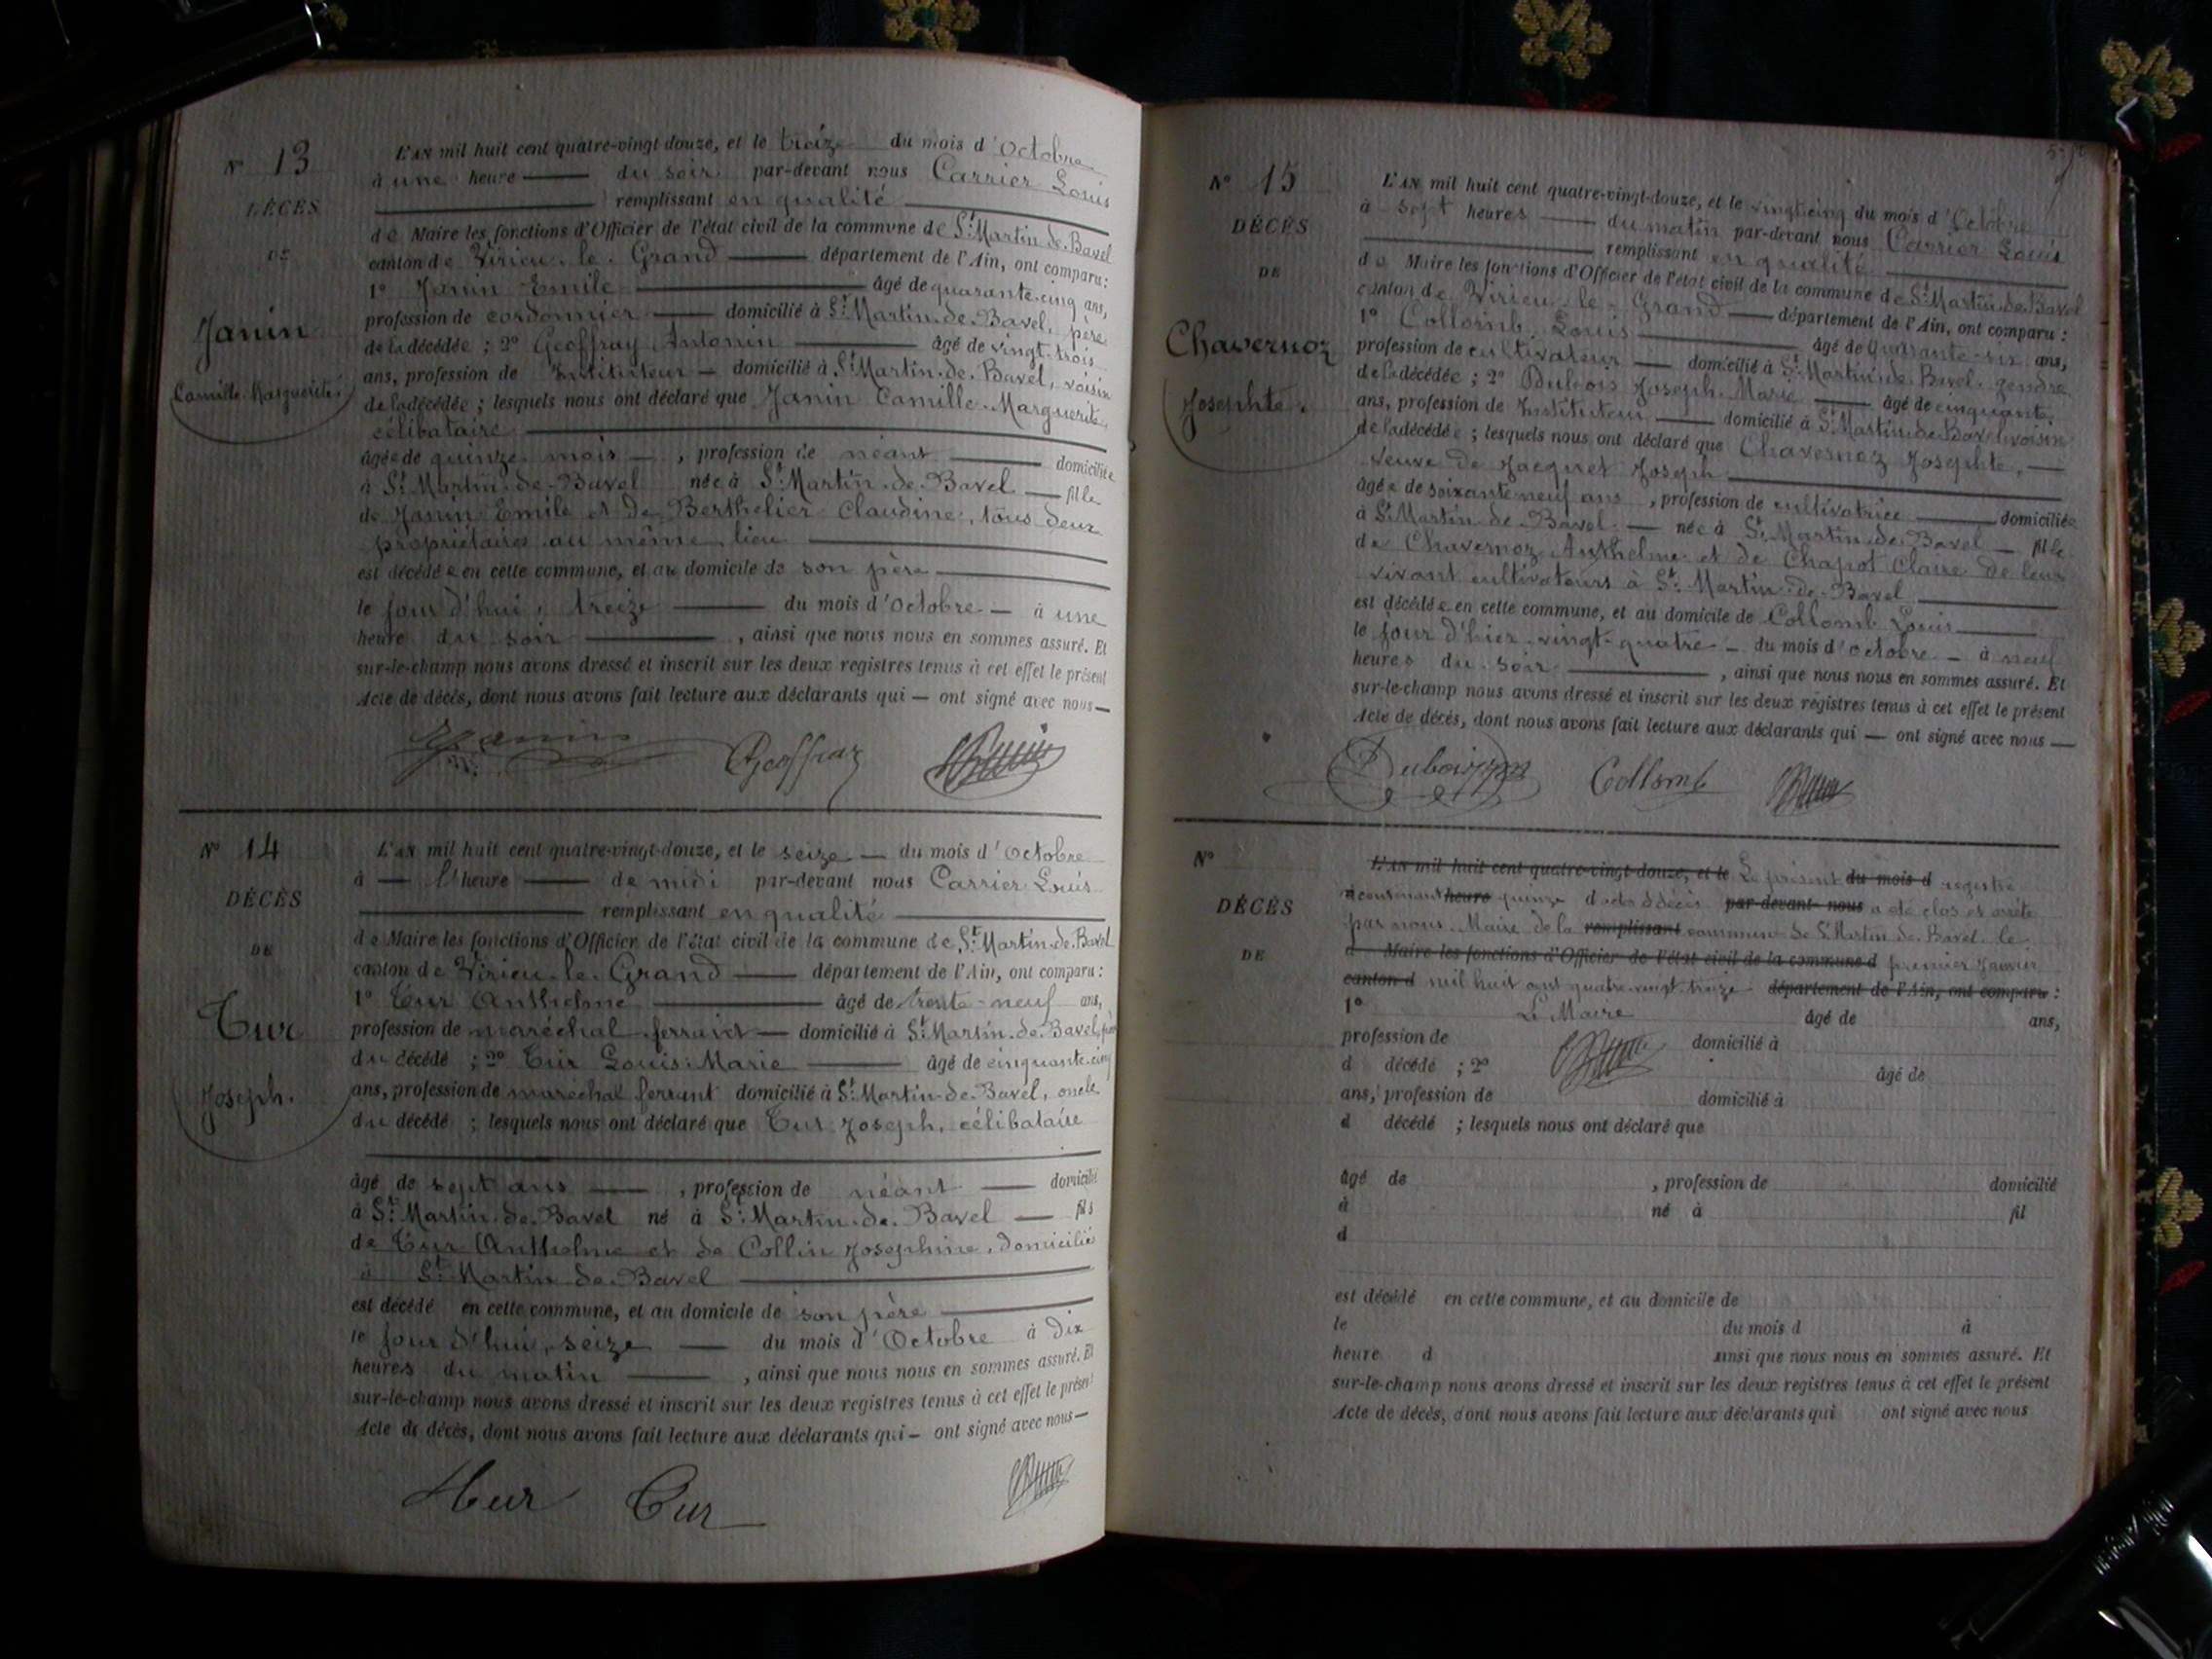 N° 13
DÉCÈS
DE
Janin
Camille-Marguerite
L'AN mil huit cent quatre-vingt-douze, et le treize du mois d'Octobre
à une heure du soir par-devant nous Carrier Louis
remplissant en qualité
de Maire les fonctions d'Officier de l'état civil de la commune de St Martin-de-Bavel
canton de Virieu-le-Grand département de l'Ain, ont comparu :
1° Janin Emile âgé de quarante-cinq ans,
profession de cordonnier domicilié à St Martin-de-Bavel, père
de la décédée ; 2° Geoffray Antonin âgé de vingt-trois
ans, profession de Instituteur domicilié à St Martin-de-Bavel, voisin
de la décédée ; lesquels nous ont déclaré que Janin Camille-Marguerite,
célibataire
âgée de quinze mois, profession de néant domiciliée
à St Martin-de-Bavel née à St Martin-de-Bavel fille
de Janin Emile et de Berthelier Claudine, tous deux
propriétaires au même lieu
est décédée en cette commune, et au domicile de son père
le jour d'hui, treize du mois d'Octobre à une
heure du soir, ainsi que nous nous en sommes assuré. Et
sur-le-champ nous avons dressé et inscrit sur les deux registres tenus à cet effet le présent
Acte de décès, dont nous avons fait lecture aux déclarants qui — ont signé avec nous —
Janin Geoffray
N° 14
DÉCÈS
DE
Tur
Joseph.
L'AN mil huit cent quatre-vingt-douze, et le seize du mois d'Octobre
à l'heure de midi par-devant nous Carrier Louis
remplissant en qualité
de Maire les fonctions d'Officier de l'état civil de la commune de St Martin-de-Bavel
canton de Virieu-le-Grand département de l'Ain, ont comparu :
1° Tur Anthelme âgé de trente-neuf ans,
profession de maréchal-ferrant domicilié à St Martin-de-Bavel, père
du décédé ; 2° Tur Louis-Marie âgé de cinquante-cinq
ans, profession de maréchal ferrant domicilié à St Martin-de-Bavel, oncle
du décédé ; lesquels nous ont déclaré que Tur Joseph, célibataire
âgé de sept ans, profession de néant domicilié
à St Martin-de-Bavel né à St Martin-de-Bavel fils
de Tur Anthelme et de Collin Josephine, domiciliés
à St Martin-de-Bavel
est décédé en cette commune, et au domicile de son père
le jour d'hui, seize du mois d'Octobre à dix
heures du matin, ainsi que nous nous en sommes assuré. Et
sur-le-champ nous avons dressé et inscrit sur les deux registres tenus à cet effet le présent
Acte de décès, dont nous avons fait lecture aux déclarants qui — ont signé avec nous —
Tur Tur
N° 15
DÉCÈS
DE
Chavernoz
Josephte.
L'AN mil huit cent quatre-vingt-douze, et le vingt-cinq du mois d'Octobre
à sept heures du matin par-devant nous Carrier Louis
remplissant en qualité
de Maire les fonctions d'Officier de l'état civil de la commune de St Martin-de-Bavel
canton de Virieu-le-Grand département de l'Ain, ont comparu :
1° Collomb Louis âgé de quarante-six ans,
profession de cultivateur domicilié à St Martin-de-Bavel, gendre
de la décédée ; 2° Dubois Joseph Marie âgé de cinquante
ans, profession de Instituteur domicilié à St Martin-de-Bavel, voisin
de la décédée ; lesquels nous ont déclaré que Chavernoz Josephte,
veuve de Jacquet Joseph
âgée de soixante-neuf ans, profession de cultivatrice domiciliée
à St Martin-de-Bavel née à St Martin-de-Bavel fille
de Chavernoz Anthelme et de Chapot Claire de leur
vivant cultivateurs à St Martin-de-Bavel
est décédée en cette commune, et au domicile de Collomb Louis
le jour d'hier, vingt-quatre du mois d'octobre à neuf
heures du soir, ainsi que nous nous en sommes assuré. Et
sur-le-champ nous avons dressé et inscrit sur les deux registres tenus à cet effet le présent
Acte de décès, dont nous avons fait lecture aux déclarants qui — ont signé avec nous —
Dubois Collomb
N°
DÉCÈS
DE
L'AN mil huit cent quatre-vingt-douze, et le Le présent du mois d registre
contenant heure quinze actes de décès par-devant nous a été clos et arrêté
par nous Maire de la remplissant commune de St Martin-de-Bavel le
d Maire les fonctions d'Officier de l'état civil de la commune d premier Janvier
canton d mil huit cent quatre-vingt-treize département de l'Ain, ont comparu :
1° Le Maire âgé de ans,
profession de domicilié à
d décédé ; 2° âgé de
ans, profession de domicilié à
d décédé ; lesquels nous ont déclaré que
âgé de , profession de domicilié
à né à fil
d
est décédé en cette commune, et au domicile de
le du mois d à
heure d ainsi que nous nous en sommes assuré. Et
sur-le-champ nous avons dressé et inscrit sur les deux registres tenus à cet effet le présent
Acte de décès, dont nous avons fait lecture aux déclarants qui ont signé avec nous